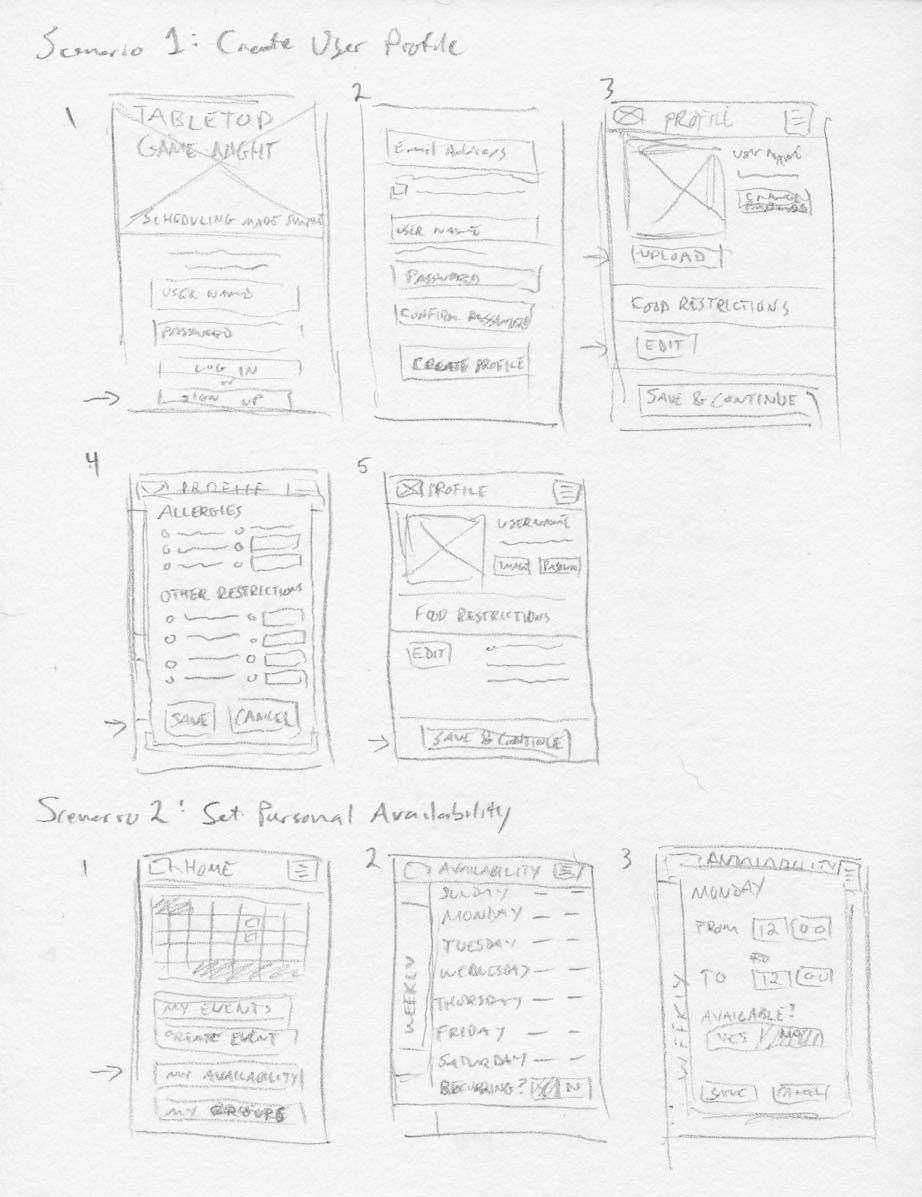 Scenario 1: Create User Profile
1
TABLETOP
GAME NIGHT
SCHEDULING MADE SIMPLE
USER NAME
PASSWORD
LOG IN
or
SIGN UP
2
Email Address
USER NAME
PASSWORD
CONFIRM PASSWORD
CREATE PROFILE
3
PROFILE
USER NAME
CHANGE
PASSWORD
UPLOAD
FOOD RESTRICTIONS
EDIT
SAVE & CONTINUE
4
PROFILE
ALLERGIES
OTHER RESTRICTIONS
SAVE CANCEL
5
PROFILE
USERNAME
IMAGE
FOOD RESTRICTIONS
EDIT
SAVE & CONTINUE
Scenario 2: Set Personal Availability
1
HOME
MY EVENTS
CREATE EVENT
MY AVAILABILITY
MY GROUPS
2
AVAILABILITY
WEEKLY
SUNDAY
MONDAY
TUESDAY
WEDNESDAY
THURSDAY
FRIDAY
SATURDAY
RECURRING? Y N
3
AVAILABILITY
WEEKLY
MONDAY
FROM 12 00
TO 12 00
AVAILABLE?
YES NO
SAVE CANCEL